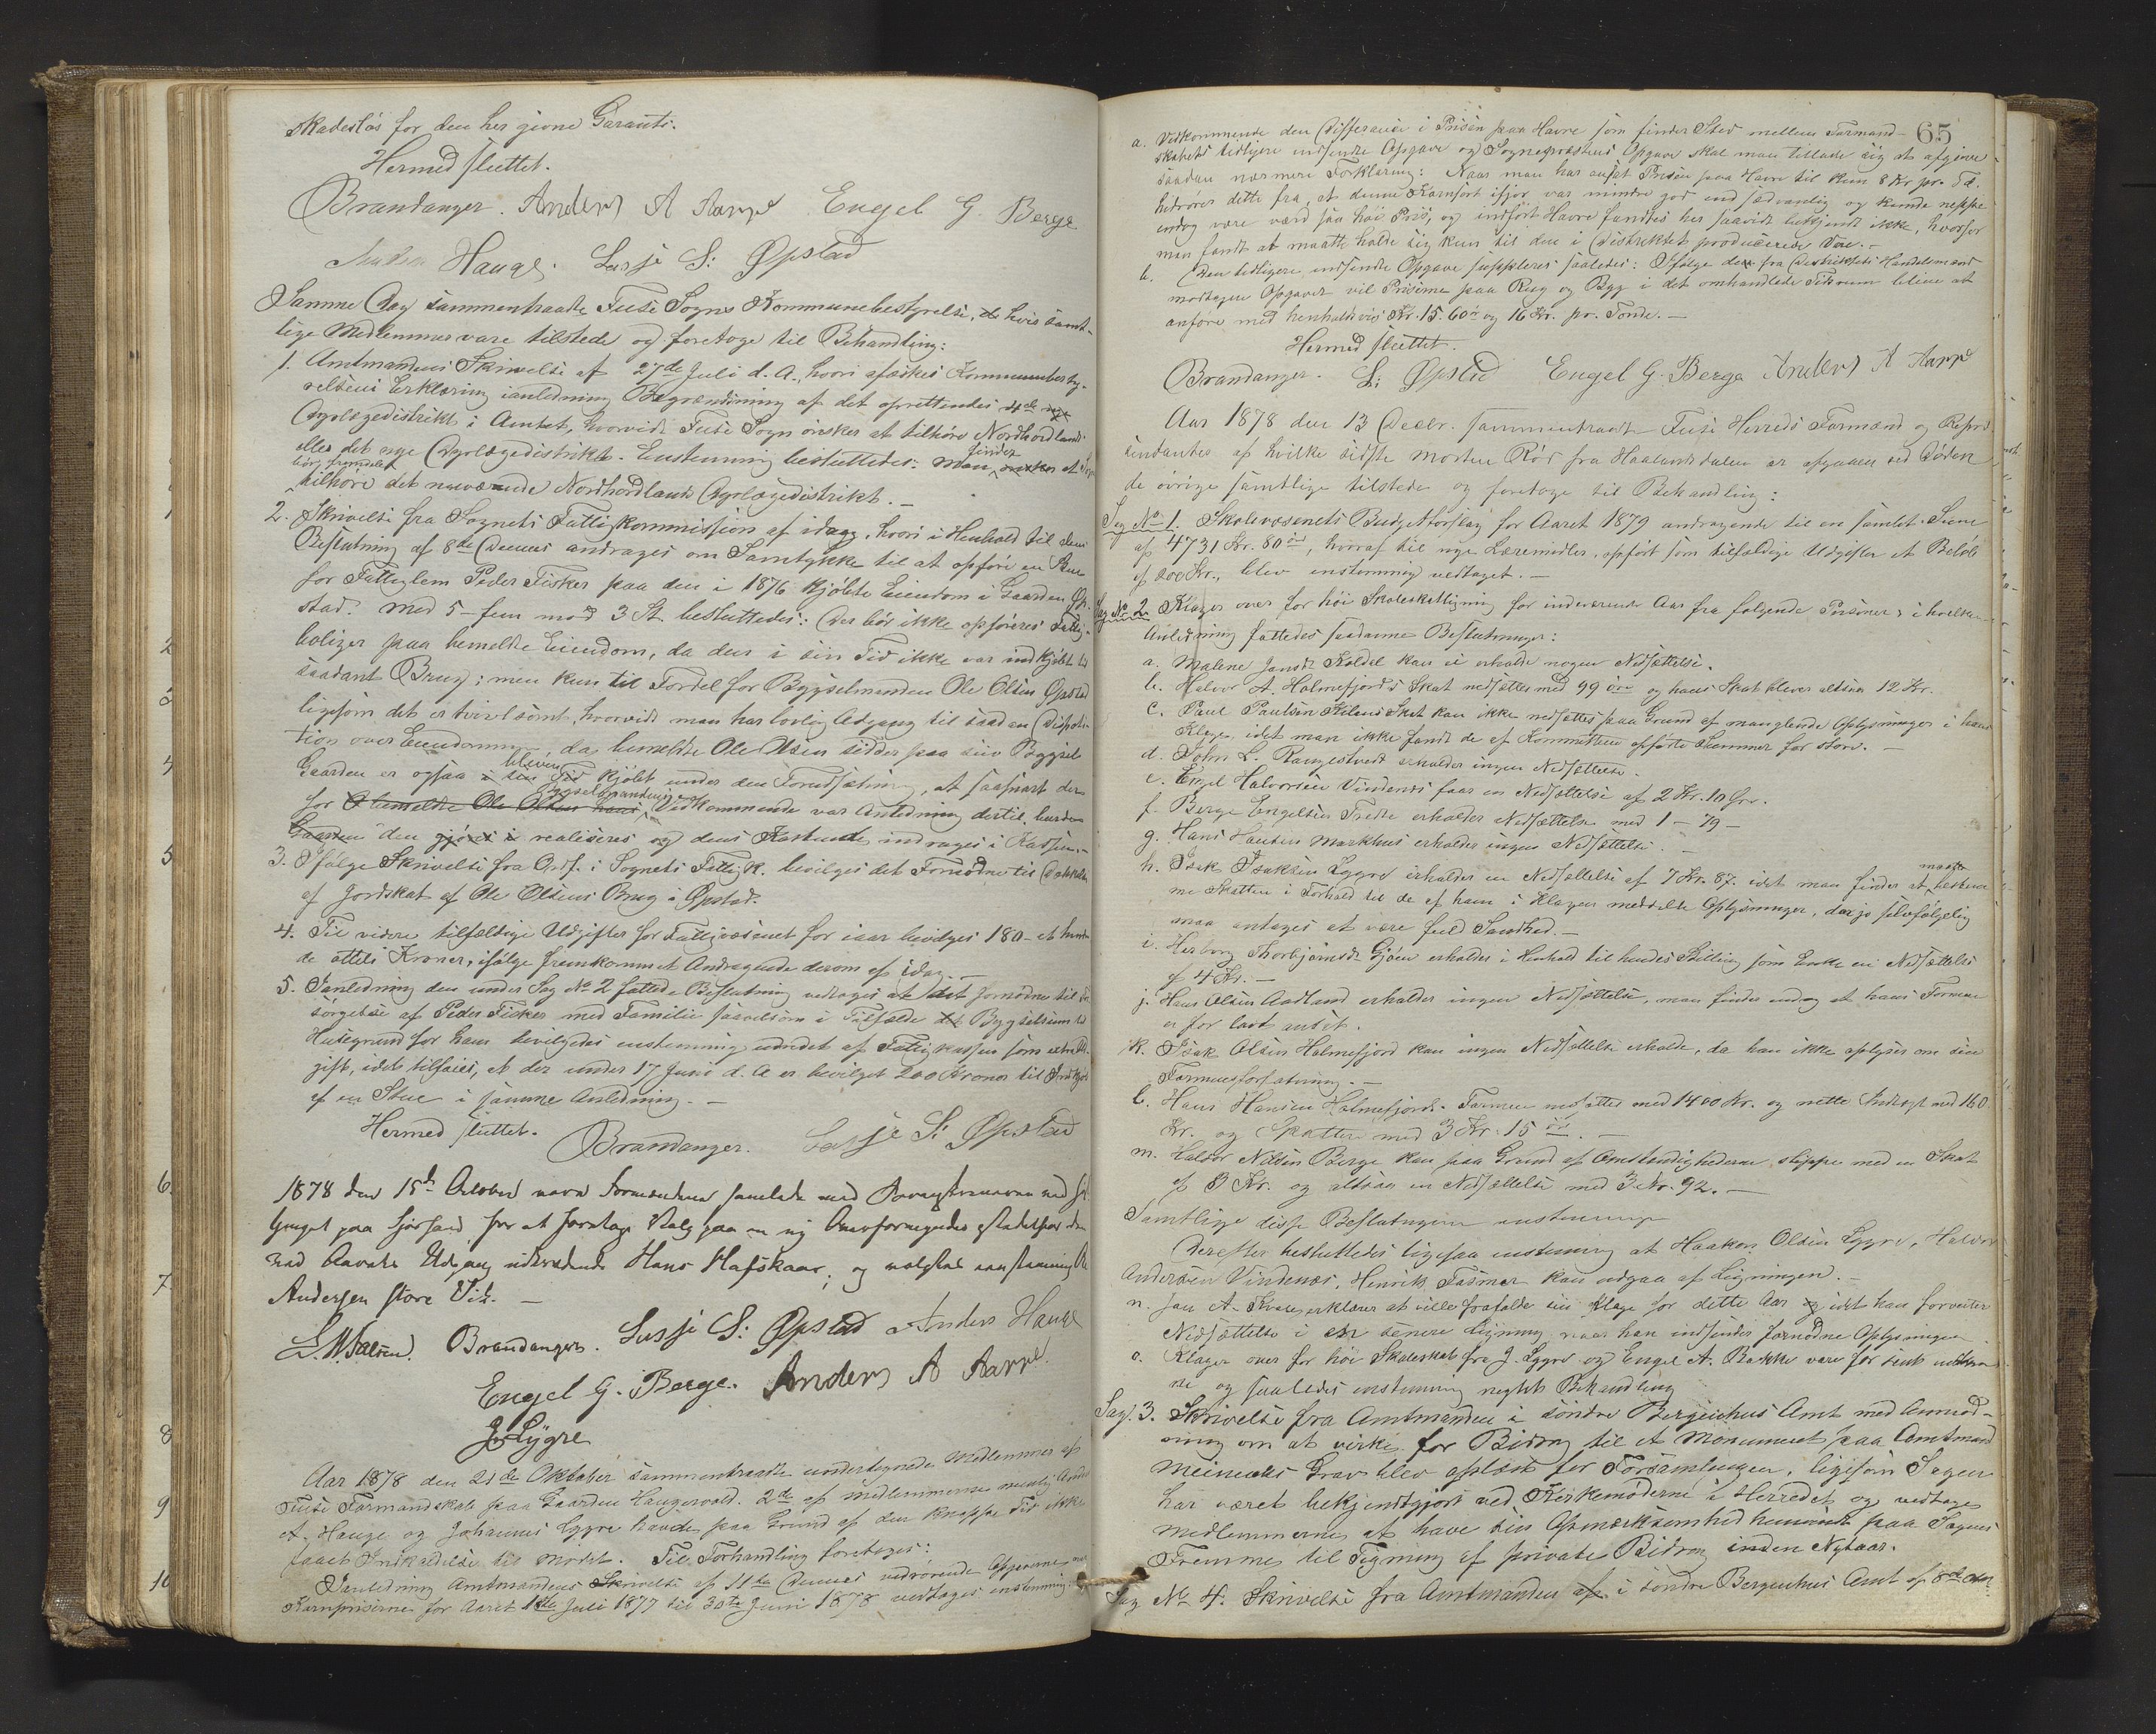 skadeslös for den her givne Garanti.
Hermed sluttet.
Brandanger. Anders A Aarre Engel G. Berge
Anders Hauge. Lasse S: Øpstad
Samme Dag sammentraadte Fuse Sogns Kommunebestyrelse, hvis samt-
lige Medlemmer vare tilstede og foretoge til Behandling:
1. Amtmandens Skrivelse af 27de Juli d. A., hvori afæskes Kommunebesty-
relsens Erklæring ianledning Begrændsning af det oprettendes 4de
Dyrlægedistrikt i Amtet, hvorvidt Fuse Sogn ønsker at tilhøre Nordhordlands
eller det nye Dyrlægedistrikt. Enstemmig besluttedes: Man finder at Sognet
bör fremdeles tilhøre det nuværende Nordhordlands Dyrlægedistrikt. —
2. Skrivelse fra Sognets Fattigkommission af idag, hvori i Henhold til dens
Beslutning af 8de Dennes andrages om Samtykke til at opføre en Stue
for Fattiglem Peder Fisker paa den i 1876 kjöbte Eiendom i Gaarden Øp-
stad. Med 5 – fem mod 3 St. besluttedes: Der bör ikke opføres Fattig-
boliger paa bemeldte Eiendom, da den i sin Tid ikke var indkjöbt til
saadant Brug; men kun til Fordel for Bygselmanden Ole Olsen Øpstad
ligesom det er tvivlsomt, hvorvidt man har lovlig Adgang til saadan Disposi-
tion over Eiendommen, da bemeldte Ole Olsen sidder paa sin Bygsel
Gaarden er ogsaa i sin Tid bleven kjöbt under den Forudsætning, at saasnart der
for Bygselmandens Vedkommende var Anledning dertil, burde
den realiseres og dens Kostende inddrages i Kassen. —
3. Ifølge Skrivelse fra Ordf. i Sognets Fattigk. bevilges det Fornødne til Dækkelse
af Jordskat af Ole Olsens Brug i Øpstad.
4. Til videre tilfældige Udgifter for Fattigvæsenet for iaar bevilges 180 – et hundre-
de otteti Kroner, ifølge fremkommet Andragende derom af idag. —
5. Ianledning den under Sag No 2 fattede Beslutning vedtages at det fornødne til For-
sørgelse af Peder Fisker med Familie saavelsom i Tilfælde Bygselsum til
Husegrund for ham bevilgedes enstemmig udredet af Fattigkassen som extra Ud-
gift, idet tilføies, at der under 17 Juni d. A er bevilget 200 Kroner til Indkjöb
af en Stue i samme Anledning. —
Hermed sluttet.
Brandanger. Lasse S: Øpstad
1878 den 15de October vare Formændene samlede med
paa for at foretage Valg paa en ny Overformynder istedetfor den
ved Aarets Udgang udtrædende Hans Hafskaar; og valgtes eenstemmig Ole
Andersen store Vik. —
Brandanger. Lasse S: Øpstad Anders Hauge
Engel G. Berge. Anders A Aarre
J. Lygre
Aar 1878 den 21de Oktober sammentraadte undertegnede Medlemmer af
Fuse Formandskab paa Gaarden Haugervold. 2de af Medlemmerne nemlig Anders
A. Hauge og Johannes Lygre havde paa Grund af den knappe Tid ikke
faaet Indkaldelse til Mödet. Til Forhandling foretoges:
Ianledning Amtmandens Skrivelse af 11te Dennes vedrörende Opgaverne over
Kornpriserne for Aaret 1ste Juli 1877 til 30te Juni 1878 vedtages enstemmig:
65
a. Vedkommende den Differance i Prisen paa Havre som finder Sted mellem Formand-
skabets tidligere indsendte Opgave og Sognepræstens Opgave skal man tillade sig at afgive
saadan nærmere Forklaring: Naar man har ansat Prisen paa Havre til kun 8 Kr pr. Td.
hidrörer dette fra, at denne Kornsort ifjor var mindre god end sædvanlig og kunde neppe
endog være værd saa höi Pris, og indført Havre fandtes her saavidt bekjendt ikke, hvorfor
man fandt at maatte holde sig kun til den i Distriktet producerede Vare. —
b. Den tidligere indsendte Opgave suppleres saaledes: Ifølge de fra Distriktets Handelsmænd
modtagne Opgaver vil Priserne paa Rug og Byg i det omhandlede Tidsrum blive at
anføre med henholdsvis Kr. 15. 60 ör og 16 Kr. pr. Tønde. —
Hermed sluttet.
Brandanger. L: Øpstad Engel G. Berge Anders A Aarre
Aar 1878 den 13 Decbr. sammentraadte Fuse Herreds Formænd og Repræ-
sentanter af hvilke sidste Morten Röd fra Haalandsdalen er afgaaen ved Döden
de övrige samtlige tilstede og foretoge til Behandling:
Sag No 1. Skolevæsenets Budgetforslag for Aaret 1879 andragende til en samlet Sum
af 4731 Kr. 80 ör, hvoraf til nye Læremidler, opfört som tilfældige Udgifter et Belöb
af 200 Kr., blev enstemmig vedtaget. —
Sag No 2. Klager over for höi Skoleskatligning for indeværende Aar fra følgende Personer, i hvilken
Anledning fattedes saadanne Beslutninger:
a. Malene Jansdt Koldal kan ei erholde nogen Nedsættelse.
b. Halvor A. Holmefjords Skat nedsættes med 99 öre og hans Skat bliver altsaa 12 Kr.
c. Paul Paulsen Kilens Skat kan ikke nedsættes paa Grund af manglende Oplysninger i hans
Klage, idet man ikke fandt de af Kommitteen opførte Summer for store. —
d. John L. Rangestvedt erholder ingen Nedsættelse.
e. Engel Halvorsen Vindenes faar en Nedsættelse af 2 Kr. 10 öre.
f. Berge Engelsen Tveite erholder Nedsættelse med 1 – 79 –
g. Hans Hansen Markhus erholder ingen Nedsættelse. —
h. Isak Isaksen Lygre erholder en Nedsættelse af 7 Kr. 87. idet man finder at maatte bestem-
me Skatten i Forhold til de af ham i Klagen meddelte Oplysninger, der jo selvfølgelig
maa antages at være fuld Sandhed. —
i. Herborg Thorbjörnsdt Gjöen erholder i Henhold til hendes Stilling som Enke en Nedsættelse
af 4 Kr. —
j. Hans Olsen Aadland erholder ingen Nedsættelse, man finder endog at hans Formue
er for lavt ansat.
k. Isak Olsen Holmefjord kan ingen Nedsættelse erholde, da han ikke oplyser om sin
Formuesforfatning. —
l. Hans Hansen Holmefjords Formue nedsættes med 1400 Kr. og nette Indtægt med 160
Kr. og Skatten med 3 Kr. 15 ör. —
m. Halvor Nilsen Berge kan paa Grund af Omstændighederne slippe med en Skat
af 8 Kr. og altsaa en Nedsættelse med 3 Kr. 92. —
Samtlige disse Beslutninger enstemmige
Derefter besluttedes ligesaa enstemmig at Haakon Olsen Lygre, Halvor
Andersen Vindenes, Henrik Fasmer kan udgaa af Ligningen. —
n. Jan A. erklærer at ville frafalde sin Klage for dette Aar idet han forventer
Nedsættelse i en senere Ligning naar han indsender fornødne Oplysninger
o. Klager over for höi Skoleskat fra J. Lygre og Engel A. Bakke vare for sent
og saaledes enstemmig negtet Behandling
Sag. 3. Skrivelse fra Amtmanden i söndre Bergenhus Amt med Anmod-
ning om at virke for Bidrag til et Monument paa Amtmand
Meineckes Grav blev oplæst for Forsamlingen, ligesom Sagen
har været bekjendtgjort ved Kirkemöderne i Herredet og vedtages
Medlemmerne at have sin Opmærksomhed henvendt paa Sagens
Fremme til Tegning af private Bidrag inden Nytaar.
Sag No 4. Skrivelse fra Amtmanden i söndre Bergenhus Amt af 8de